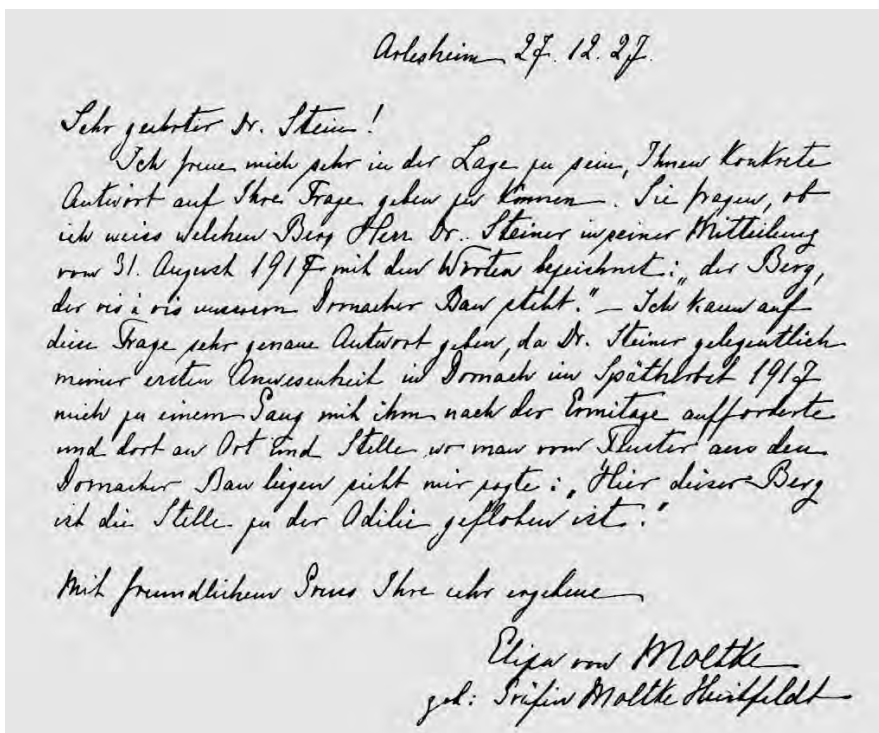 Arlesheim 27. 12. 27.
Sehr geehrter Dr. Stein!
Ich freue mich sehr in der Lage zu sein, Ihnen Konkrete
Antwort auf Ihre Frage geben zu können. Sie fragen, ob
ich weiss welchen Berg Herr Dr. Steiner in seiner Mitteilung
vom 31. August 1917 mit den Worten bezeichnet: „der Berg,
der vis à vis unserem Dornacher Bau steht.“ – Ich kann auf
diese Frage sehr genaue Antwort geben, da Dr. Steiner gelegentlich
meiner ersten Anwesenheit in Dornach im Spätherbst 1917
mich zu einem Gang mit ihm nach der Ermitage aufforderte
und dort an Ort und Stelle wo man vom Fenster aus den
Dornacher Bau liegen sieht mir sagte: „Hier dieser Berg
ist die Stelle zu der Odilie geflohen ist.“
Mit freundlichem Gruss Ihre sehr ergebene
Eliza von Moltke
geb: Gräfin Moltke Huitfeldt